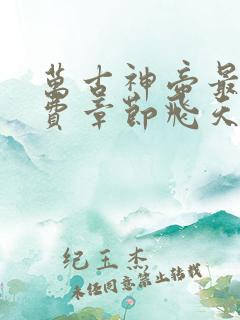 萬古神帝最
費章節飛天
纪玉杰
未经同意禁止转载